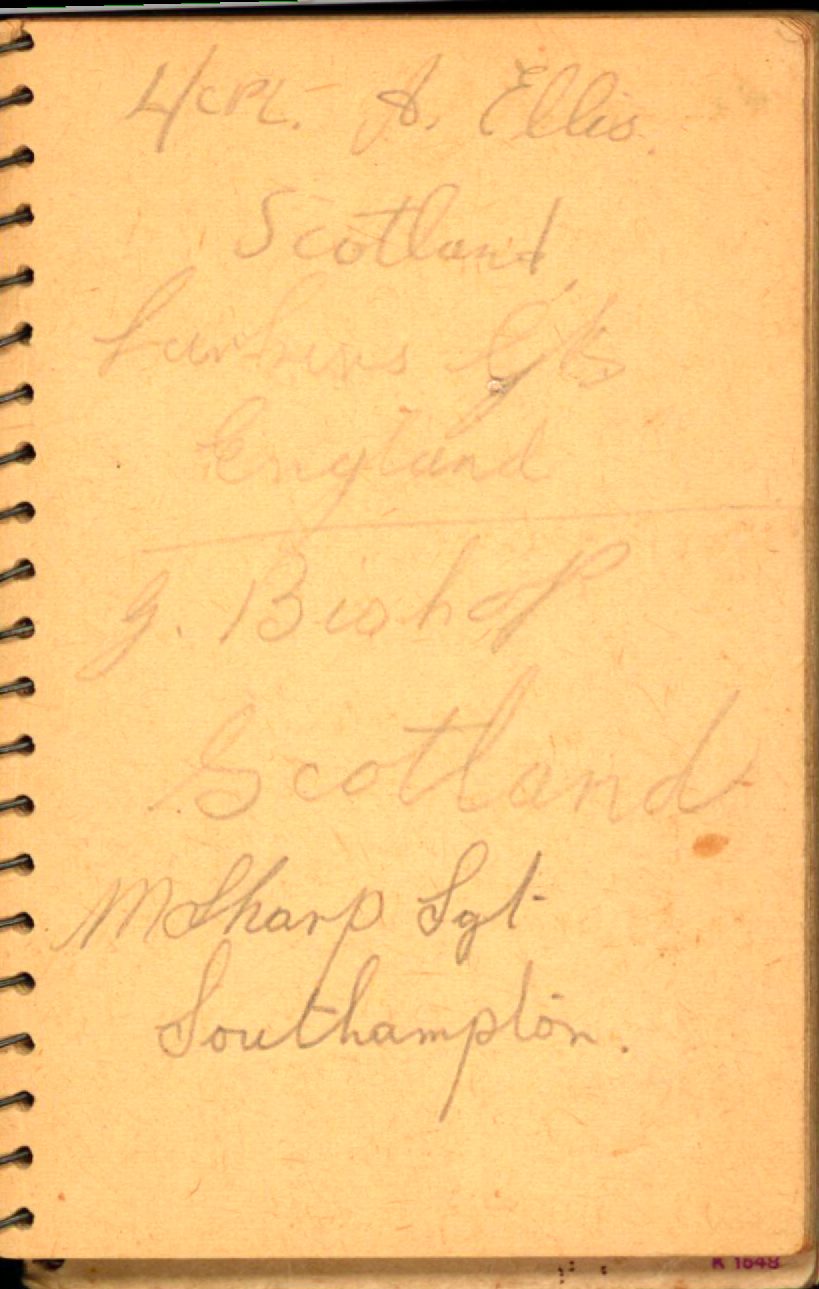 L/CPL. A. Ellis.
Scotland
England
G. Bishop
Scotland
M Sharp Sgt
Southampton.
K 1648